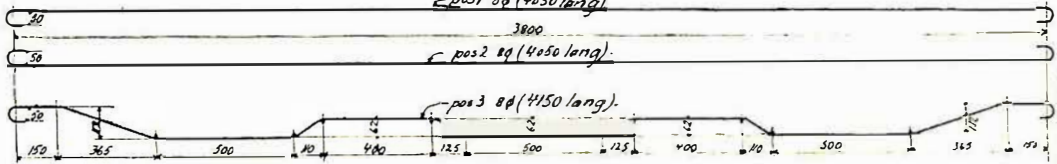 pos1 8φ (4050 lang)
50
3800
50
pos2 8φ (4050 lang).
pos3 8φ (4150 lang).
50
112
62
62
62
112
150 365 500 110 400 125 500 125 400 110 500 365 150